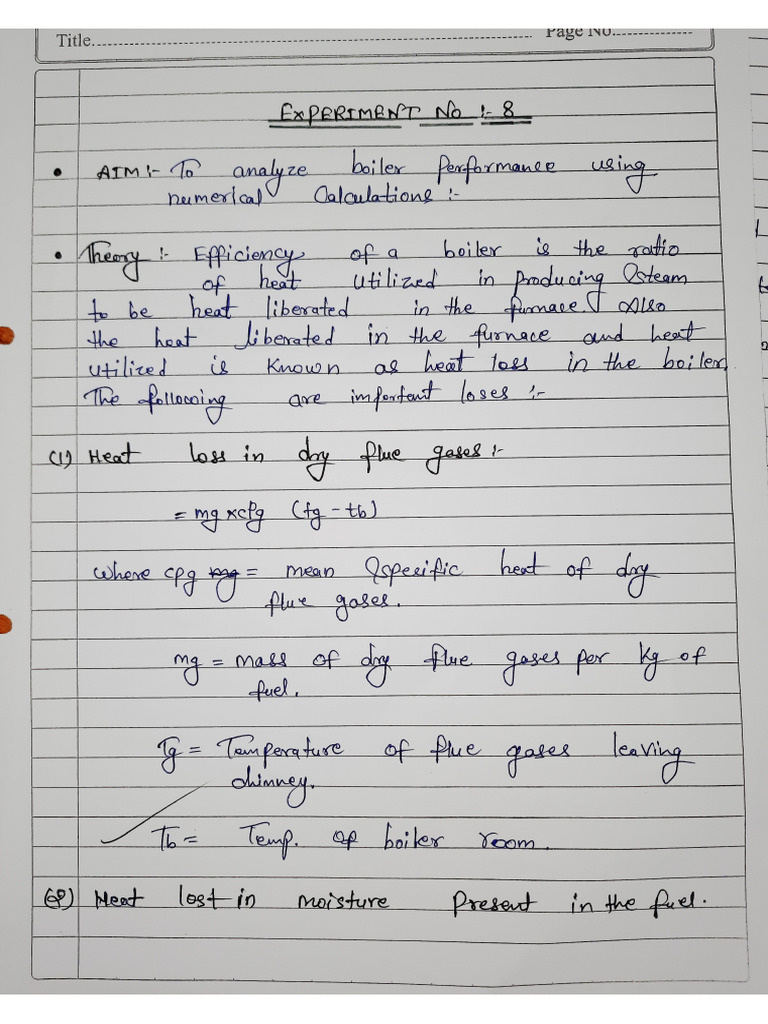 Title........................ Page No.............
EXPERIMENT No :- 8
• AIM :- To analyze boiler Performance using
numerical Calculations :-
• Theory :- Efficiency of a boiler is the ratio
of heat utilized in producing steam
to be heat liberated in the furnace. Also
the heat liberated in the furnace and heat
utilized is known as heat loss in the boiler.
The following are important loses :-
(1) Heat loss in dry flue gases :-
= mg x cpg (tg - tb)
where cpg = mean specific heat of dry
flue gases.
mg = mass of dry flue gases per kg of
fuel.
Tg = Temperature of flue gases leaving
chimney.
Tb = Temp. of boiler room.
(2) Heat lost in moisture Present in the fuel.